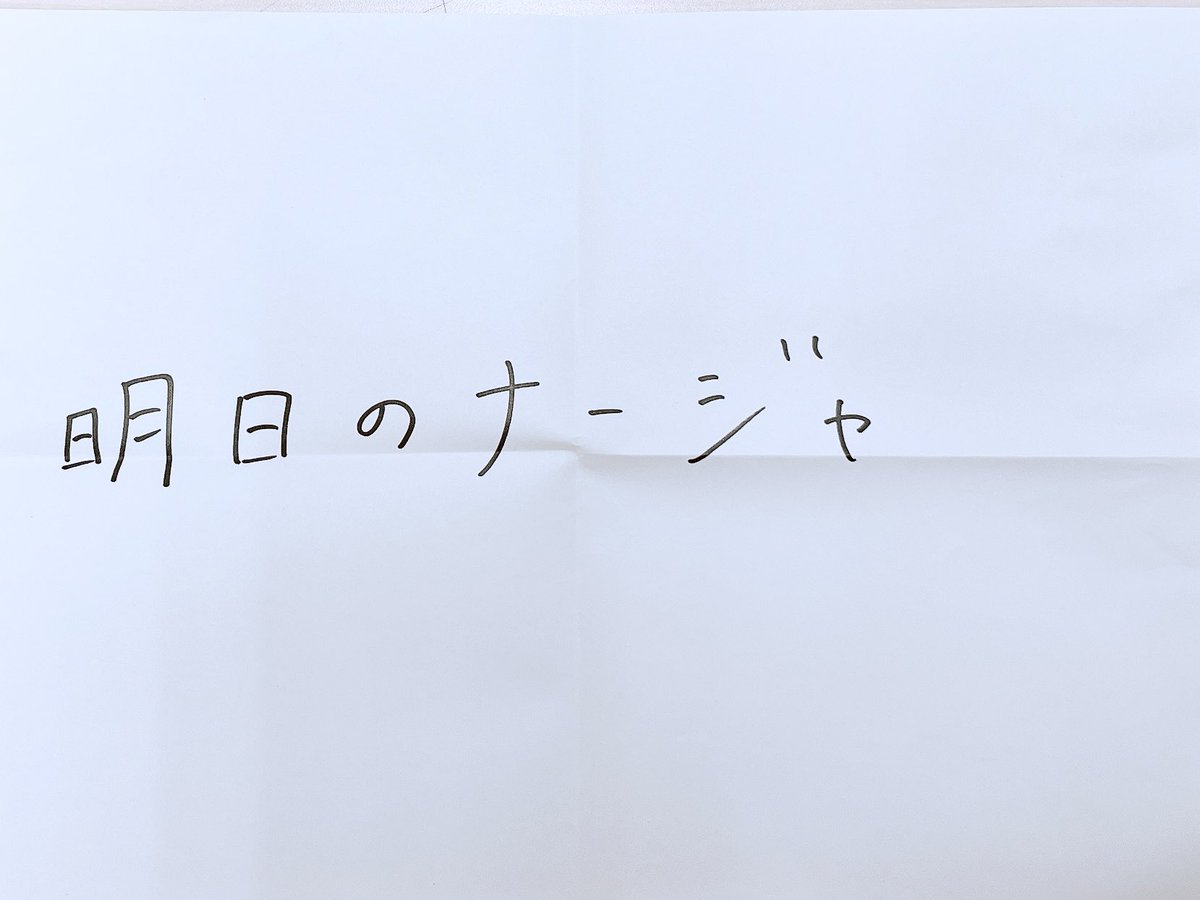 明日のナージャ